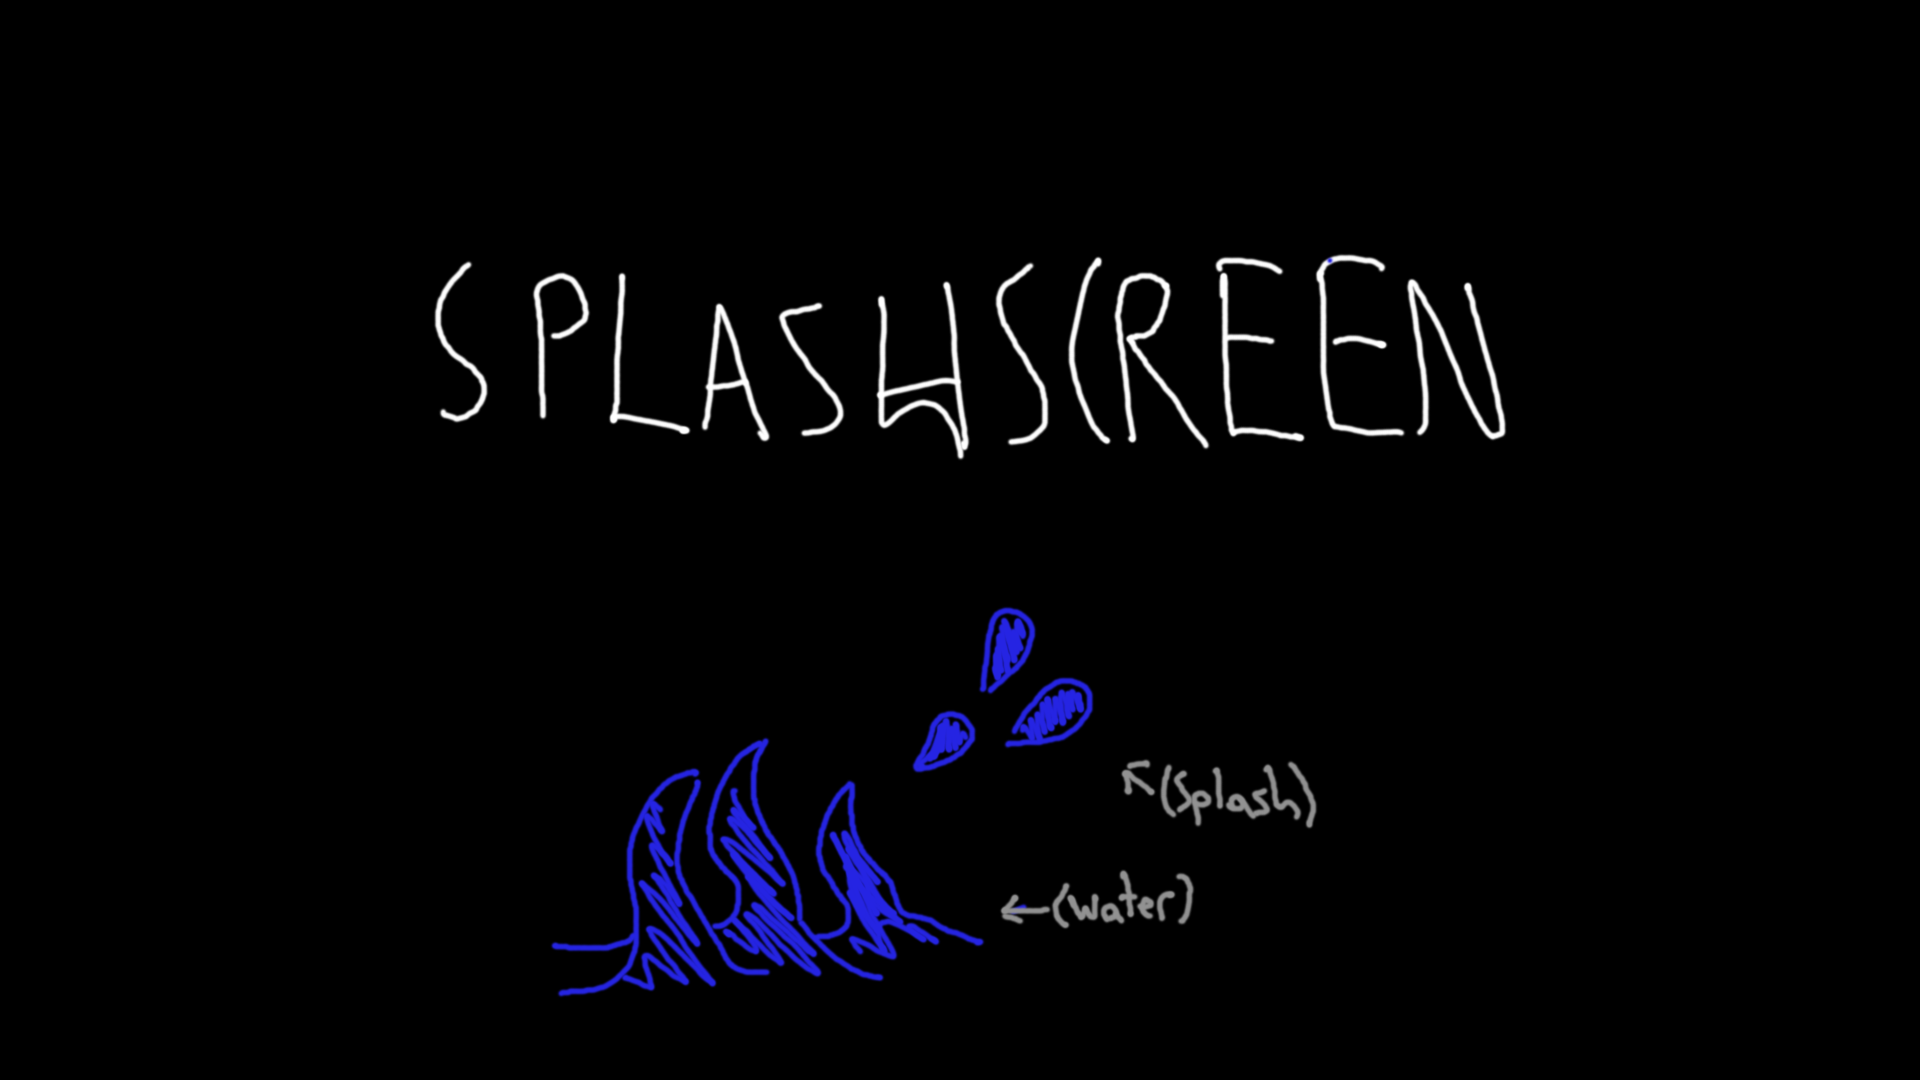 SPLASHSCREEN
(Splash)
(water)